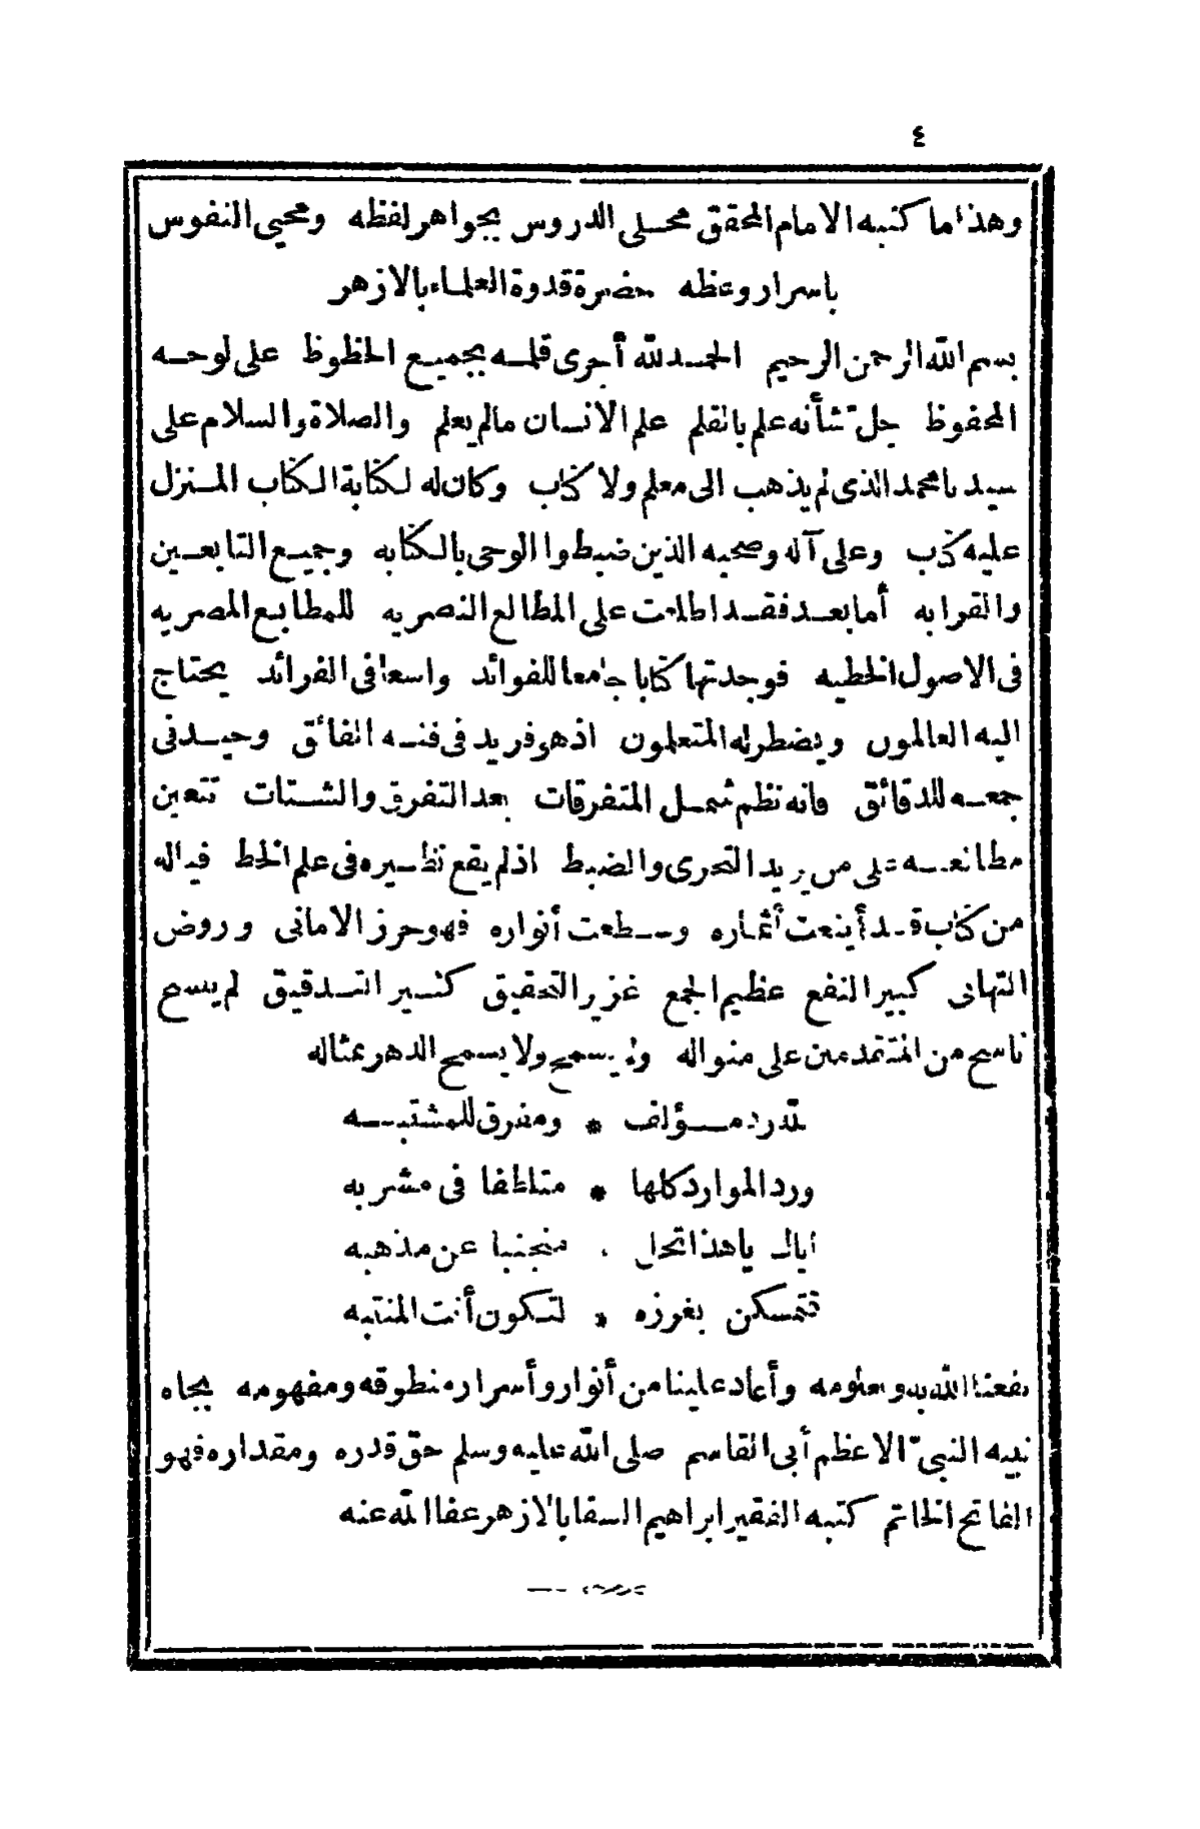 ٤
وهذا ما كتبه الامام المحقق محلى الدروس بجواهر لفظه ومحيى النفوس
باسرار وعظه حضرة قدوة العلماء بالازهر
بسم الله الرحمن الرحيم الحمد لله أجرى قلمه بجميع الحظوظ على لوحه
المحفوظ جل شأنه علم بالقلم علم الانسان مالم يعلم والصلاة والسلام على
سيدنا محمد الذى لم يذهب الى معلم ولا كتاب وكان له لكتابة الكتاب المنزل
عليه كتاب وعلى آله وصحبه الذين ضبطوا الوحى بالكتابه وجميع التابعين
والقرابه أما بعد فقد اطلعت على المطالع النصريه للمطابع المصريه
فى الاصول الخطيه فوجدتها كتابا جامعا للفوائد واسعا فى الفرائد يحتاج
اليه العالمون ويضطر له المتعلمون اذ هو فريد فى فنه الفائق وحيد فى
جمعه للدقائق فانه نظم شمل المتفرقات بعد التفرق والشتات تتعين
مطالعته على من يريد التحرى والضبط اذ لم يقع نظيره فى علم الخط فياله
من كتاب قد أينعت أثماره وسطعت أنواره فهو حرز الامانى وروض
التهانى كبير النفع عظيم الجمع غزير التحقيق كثير التدقيق لم ينسج
ناسج من المتقدمين على منواله ولم يسمح ولا يسمح الدهر بمثاله
لله در مؤلف * ومفرق للمشتبه
ورد الموارد كلها * متلطفا فى مشربه
اياك ياهذا تحل * متجنبا عن مذهبه
فتمسكن بغرزه * لتكون أنت المنتبه
نفعنا الله به وبعلومه وأعاد علينا من أنوار وأسرار منطوقه ومفهومه بجاه
نبيه النبىّ الاعظم أبى القاسم صلى الله عليه وسلم حق قدره ومقداره فهو
الفاتح الخاتم كتبه الفقير ابراهيم السقا بالازهر عفا الله عنه